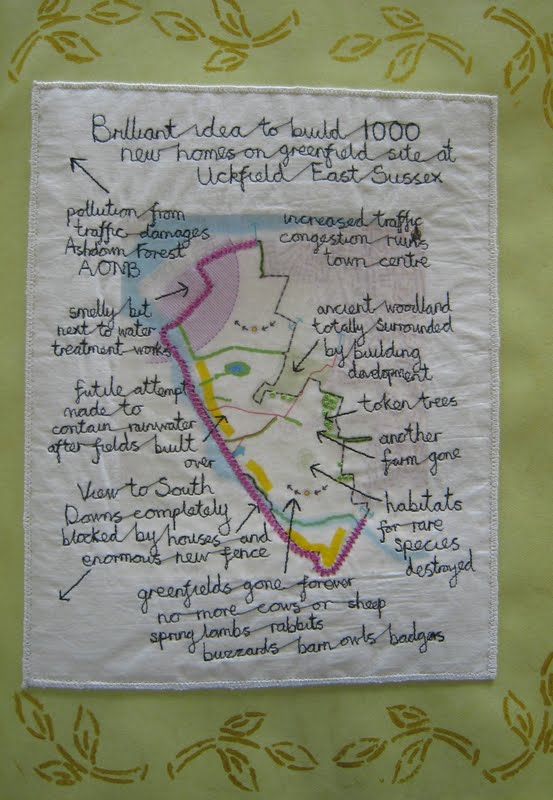 Brilliant idea to build 1000
new homes on greenfield site at
Uckfield East Sussex
pollution from
traffic damages
Ashdown Forest
AONB
increased traffic
congestion ruins
town centre
smelly bit
next to water
treatment works
ancient woodland
totally surrounded
by building
development
futile attempt
made to
contain rainwater
after fields built
over
token trees
another
farm gone
View to South
Downs completely
blocked by houses and
enormous new fence
habitats
for rare
species
destroyed
greenfields gone forever
no more cows or sheep
spring lambs rabbits
buzzards barn owls badgers